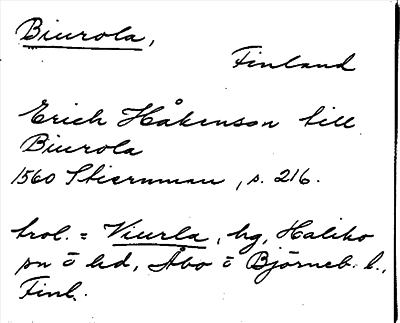 Biurola,
Finland
Erich Håkenson till
Biurola
1560 Stiernman, s. 216.
trol. = Viurla, hg, Haliko
sn o hd, Åbo o Björneb. l.,
Finl.